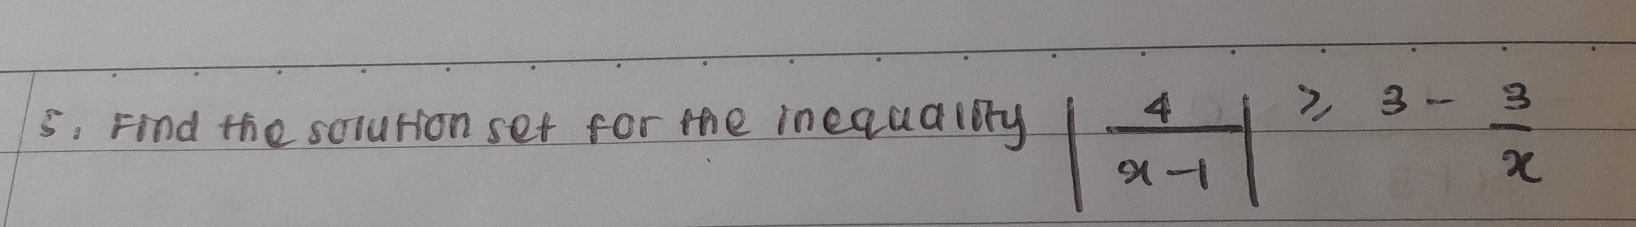 5. Find the solution set for the inequality | 4/(x-1) | ⩾ 3 - 3/x